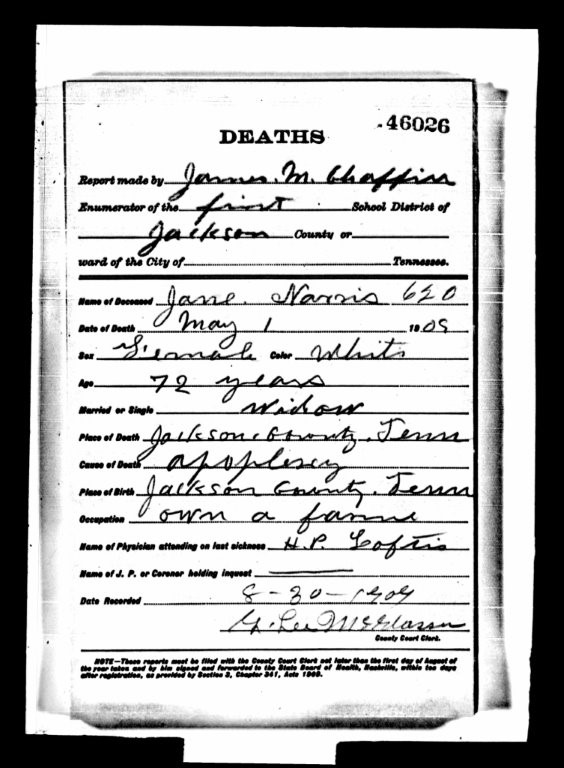 46026
DEATHS
Report made by James. M. Chaffin
Enumerator of the first School District of
Jackson County or
ward of the City of Tennessee.
Name of Deceased Jane. Narris 620
Date of Death May 1 1909
Sex Female Color White
Age 72 years
Married or Single Widow
Place of Death Jackson County. Tenn
Cause of Death apoplexy
Place of Birth Jackson County. Tenn
Occupation own a farme
Name of Physician attending on last sickness H.P. Loftis
Name of J. P. or Coroner holding inquest
Date Recorded 8-30-1909
Lee McGlasson
County Court Clerk.
NOTE—These reports must be filed with the County Court Clerk not later than the first day of August of
the year taken and by him signed and forwarded to the State Board of Health, Nashville, within ten days
after registration, as provided by Section 3, Chapter 341, Acts 1909.